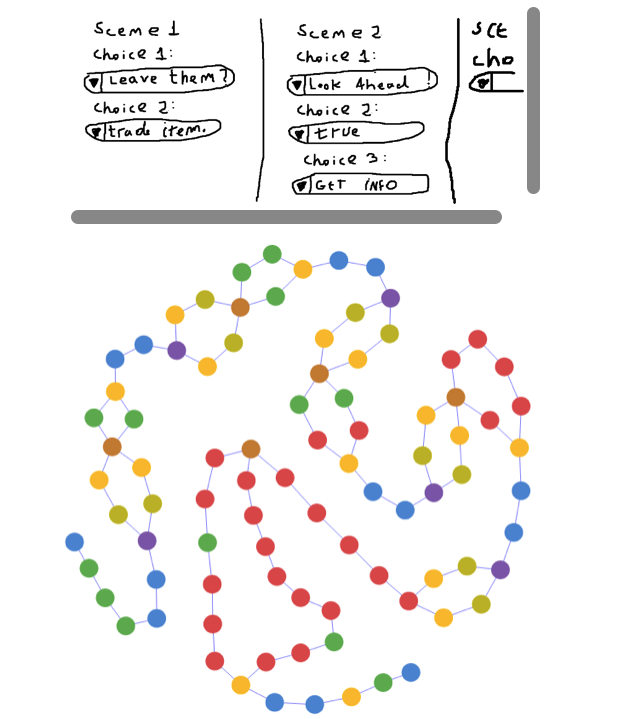 Scene 1
Choice 1:
Leave them?
Choice 2:
trade item.
Scene 2
Choice 1:
Look Ahead !
Choice 2:
true
Choice 3:
GET INFO
Sce
cho